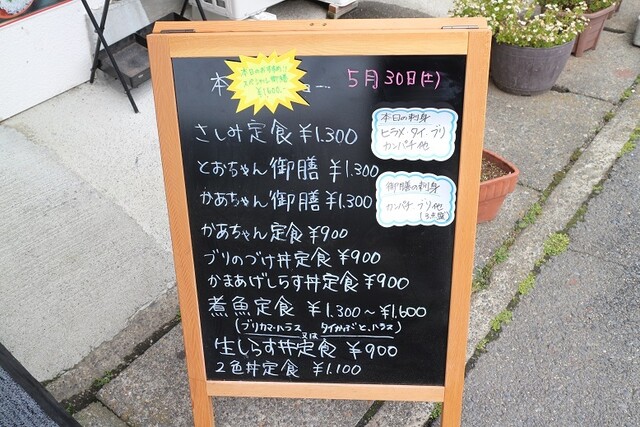 本日のおすすめ!!
¥1600-
本
5月30日(土)
さしみ定食 ¥1.300
とおちゃん御膳 ¥1.300
かあちゃん御膳 ¥1.300
かあちゃん定食 ¥900
ブリのづけ丼定食 ¥900
かまあげしらす丼定食 ¥900
煮魚定食 ¥1.300~¥1.600
(ブリカマ・ハラス 又は タイかぶと、ハラス)
生しらす丼定食 ¥900
2色丼定食 ¥1.100
本日の刺身
ヒラメ・タイ・ブリ
カンパチ他
御膳の刺身
カンパチ ブリ他
(3点盛)